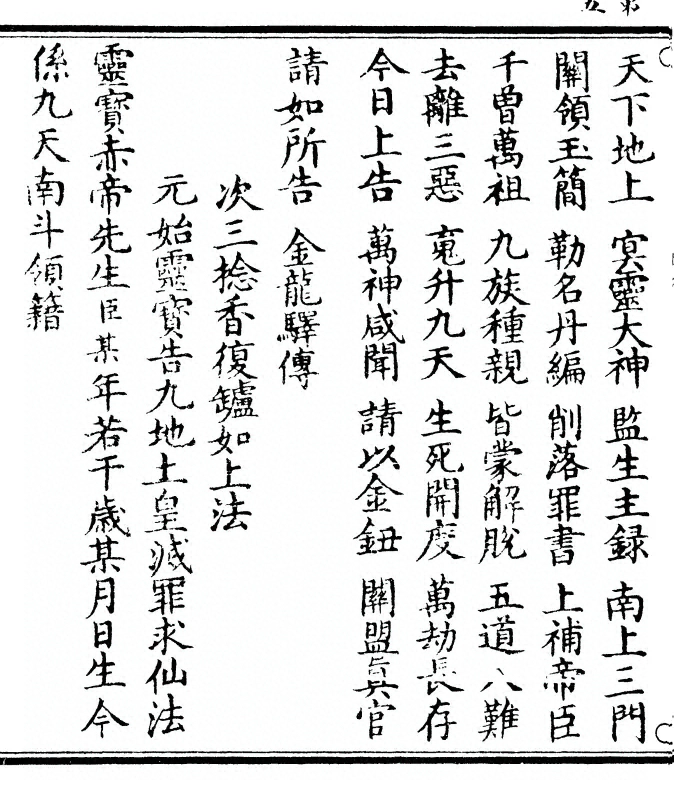 天下地上 㝠靈大神 監生主録 南上三門
關領玉簡 勒名丹編 削落罪書 上補帝臣
千曽萬祖 九族種親 皆蒙解脫 五道八難
去離三惡 䰟升九天 生死開度 萬劫長存
今日上告 萬神咸聞 請以金鈕 關盟眞官
請如所告 金龍驛傳
次三捻香復鑪如上法
元始靈寶告九地土皇滅罪求仙法
靈寶赤帝先生臣某年若干歲某月日生今
係九天南斗領籍